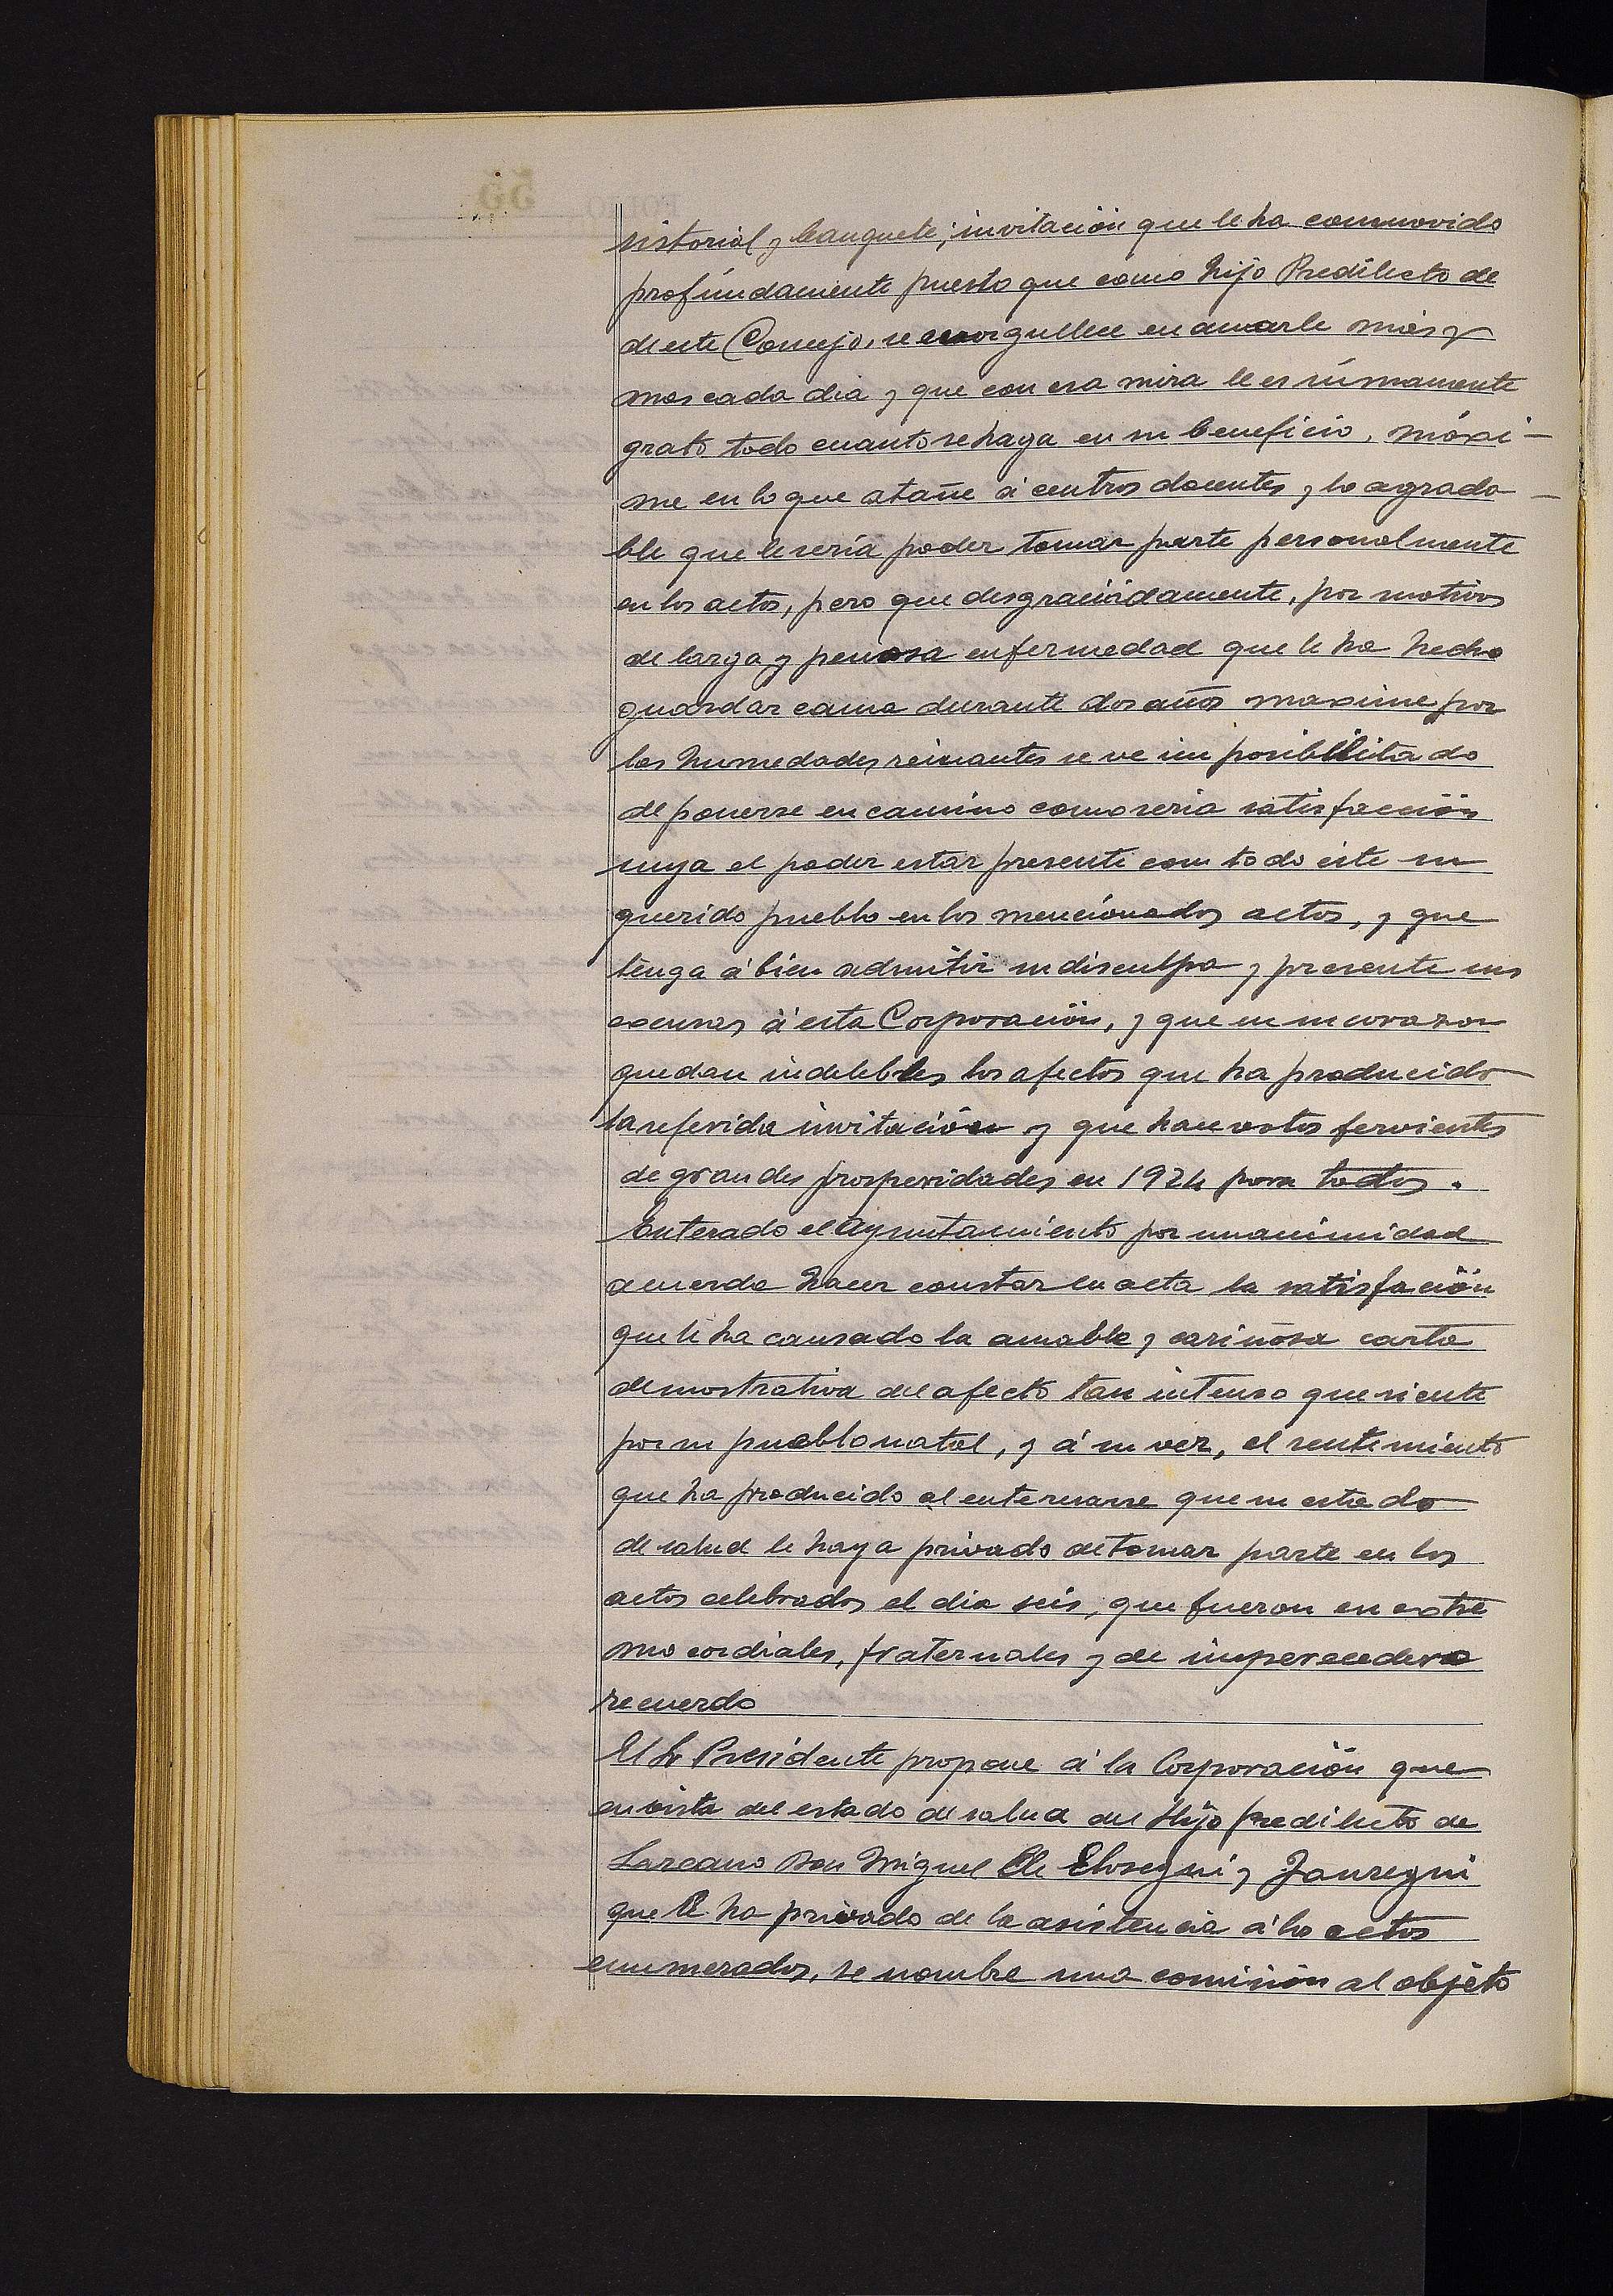 sistorial y banquete; invitación que le ha conmovido
profúndamente puesto que como hijo Predilecto de
de este Concejo, se enorgullece en amarle más y
mas cada dia y que con esa mira le es súmamente
grato todo cuanto se haga en su beneficio, máxi-
me en lo que atañe á centros docentes y lo agrada-
ble que le sería poder tomar parte personalmente
en los actos, pero que desgraciadamente, por motivos
de larga y penosa enfermedad que le ha hecho
guardar cama durante dos años maxime por
las humedades reinantes se ve imposibilitado
de ponerse en camino como seria satisfacción
suya el poder estar presente con todo éste su
querido pueblo en los mencionados actos, y que
tenga á bien admitir su disculpa y presente sus
excusas á esta Corporación, y que en su corazon
quedan indelebles los afectos que ha producido
la referida invitación y que hace votos fervientes
de grandes prosperidades en 1924 para todos.
Enterado el Ayuntamiento por unanimidad
acuerda hacer constar en acta la satisfación
que le ha causado la amable y cariñosa carta
demostrativa del afecto tan intenso que siente
por su pueblo natal, y á su vez, el sentimiento
que ha producido al enterarse que su estado
de salud le haya privado de tomar parte en los
actos celebrados el dia seis, que fueron en extre
mo cordiales, fraternales y de imperecedero
recuerdo
El Sr Presidente propone á la Corporación que
en vista del estado de salud del Hijo predilecto de
Lazcano Don Miguel de Elosegui y Jauregui
que le ha privado de la asistencia á los actos
enumerados, se nombre una comisión al objeto